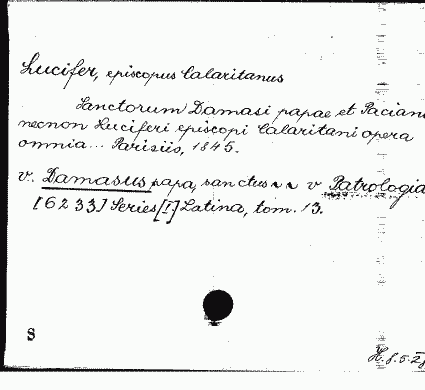 Lucifer, episcopus Calaritanus
Sanctorum Damasi papae et Paciani
necnon Luciferi episcopi Calaritani opera
omnia... Parisiis, 1845.
v. Damasus papa, sanctus v Patrologia
[6233] Series [I] Latina, tom. 13.
S